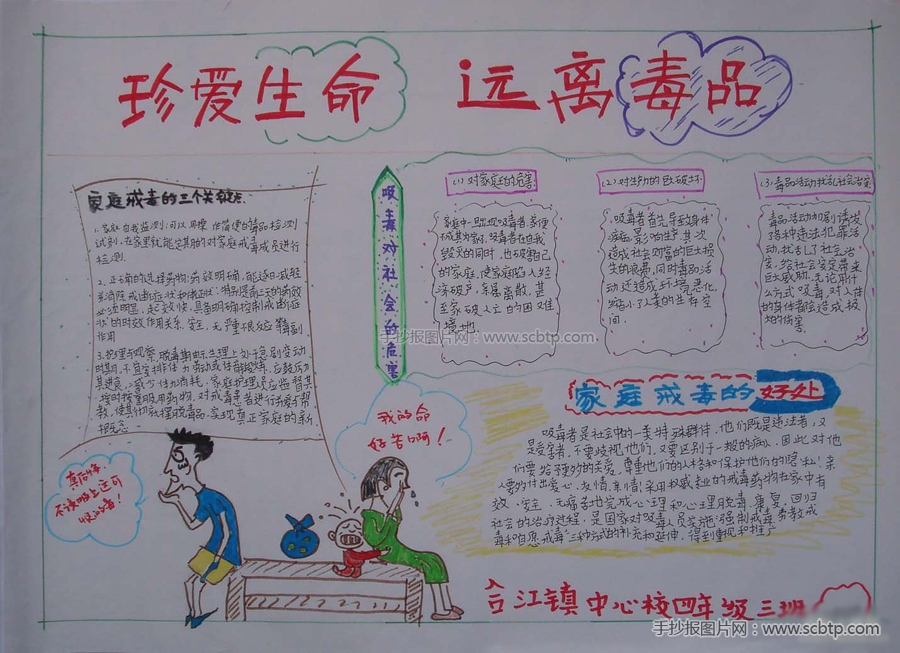 珍爱生命 远离毒品
家庭戒毒的三个关键点
1.家庭自我监测:可以用操作简便的毒品检测
试剂,在家里就能定期的对家庭戒毒成员进行
检测.
2.正确的选择药物:药效明确,能逐日减轻
必须明显,起效快,具备明确控制戒断症
状的时效作用关系,安全,无严重不良反应
3.护理与观察,脱毒期由于生理上处于急剧变动
时期,不宜安排体力劳动或体育锻炼,应鼓励为
其进食,减少体力消耗,家庭护理人员应当督
按时按量服用药物,对戒毒患者进行关爱于帮
教,使其彻底摆脱毒品,实现真正家庭的新
概念
吸毒对社会的危害
(1)对家庭的危害
家庭中一旦出现吸毒者,家便
不成其为家了,吸毒者在自我
毁灭的同时,也破坏自己
的家庭,使家庭陷入经
济破产,亲属离散,甚
至家破人亡的困难
境地.
(2)对生产力的巨大破坏
吸毒者首先导致身体
疾病,影响生产,其次
造成社会财富的巨大损
失的浪费,同时毒品活
动还造成环境恶化,
缩小了人类的生存空
间.
(3)毒品活动扰乱社会治安
毒品活动加剧诱发
了各种违法犯罪活
动,扰乱了社会治
安,给社会安定带来
巨大威胁,无论用什
么方式吸毒,对人体
的身体都会造成极
大的伤害.
家庭戒毒的好处
吸毒者是社会中的一类特殊群体,他们既是违法者,又
是受害者,不要歧视他们,又要区别于一般的病人,因此对他
们要给予强烈的关爱,尊重他们的人格和保护他们的隐私!亲
人要付出爱心,友情,亲情!采用权威专业的戒毒药物在家中有
效,安全,无痛苦地完成心理和心理脱毒,康复,回归
社会的治疗过程,是国家对吸毒人员实施"强制戒毒,劳教戒
毒和自愿戒毒"三种方式的补充和延伸,得到重视和推广
我的命
好苦啊!
真后悔,
不该吸上这可
恶的毒!
合江镇中心校四年级三班
手抄报图片网:www.scbtp.com
手抄报图片网:www.scbtp.com